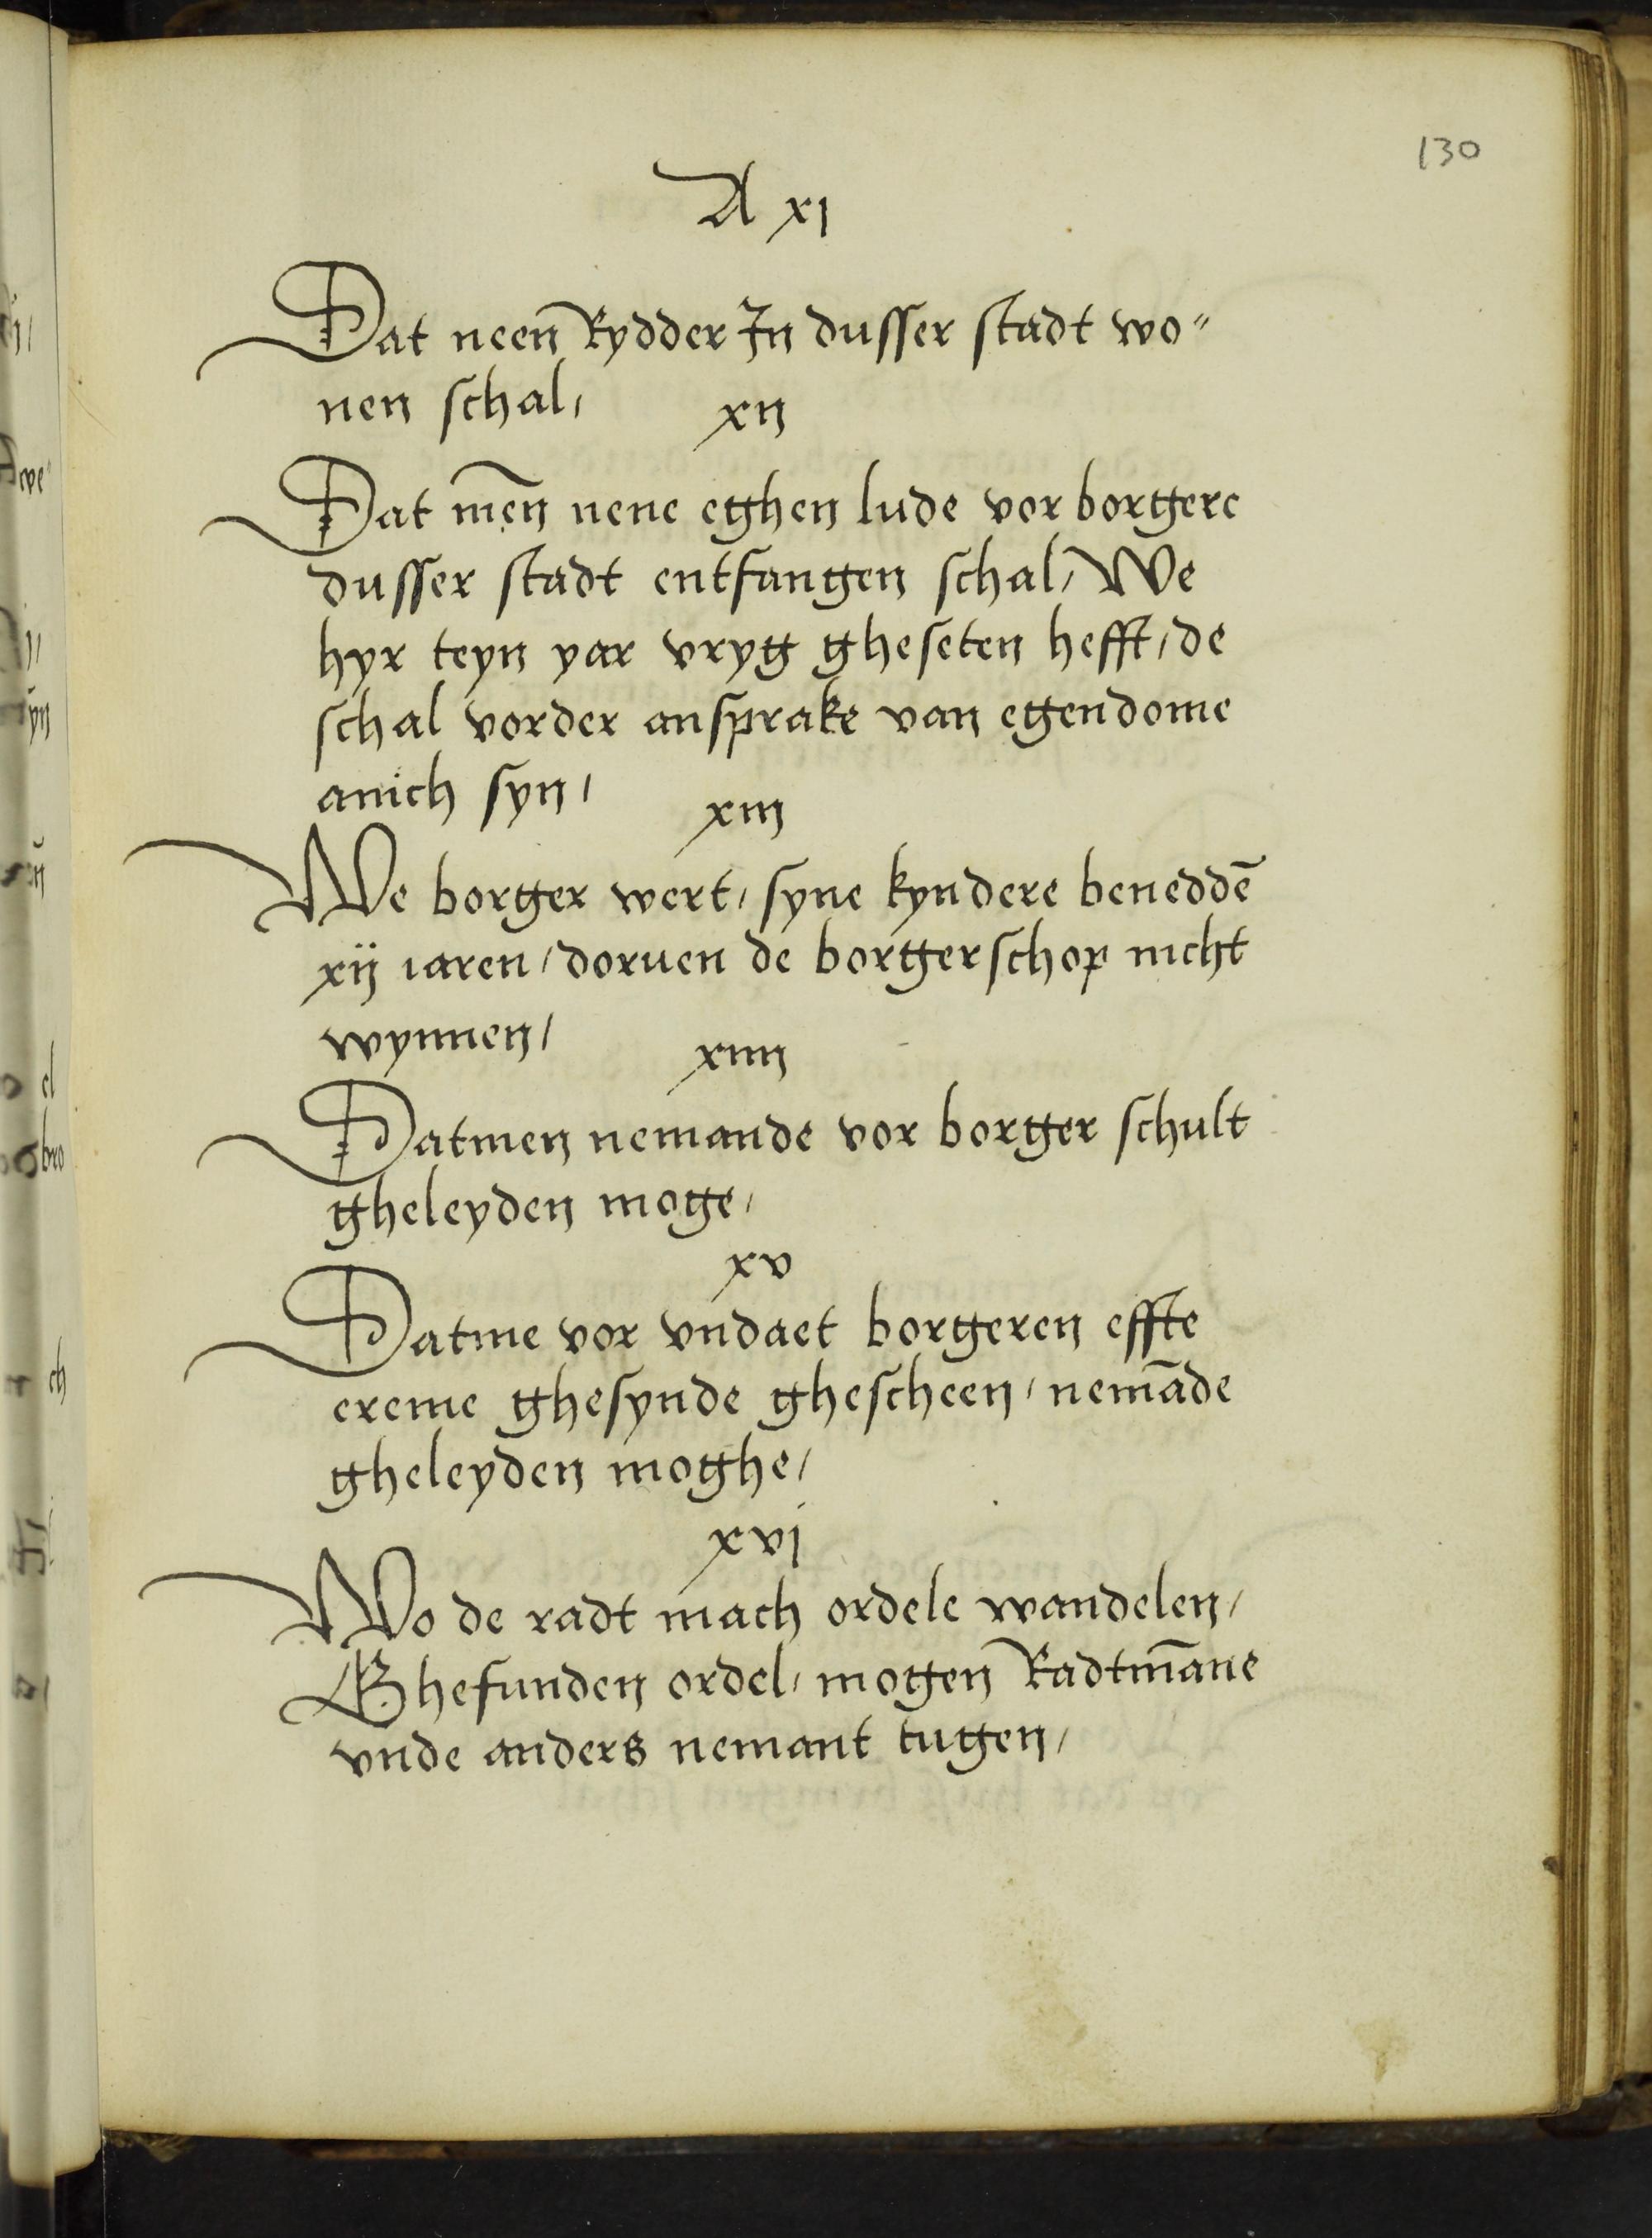 130
A xi
Dat neen Rydder In dusser stadt wo"
nen schal,
xij
Dat men nene eghen lude vor borgere
dusser stadt entfangen schal, We
hyr teyn yar vryg gheseten hefft, de
schal vorder ansprake van egendome
anich syn,
xiij
We borger wert, syne kyndere beneddē
xij iaren, doruen de borgerschop nicht
wynnen,
xiiij
Datmen nemande vor borger schult
gheleyden moge,
xv
Datme vor vndaet borgeren effte
ereme ghesynde ghescheen, nemāde
gheleyden moghe,
xvj
Wo de radt mach ordele wandelen,
Ghefunden ordel, mogen Radtmāne
vnde anders nemant tugen,